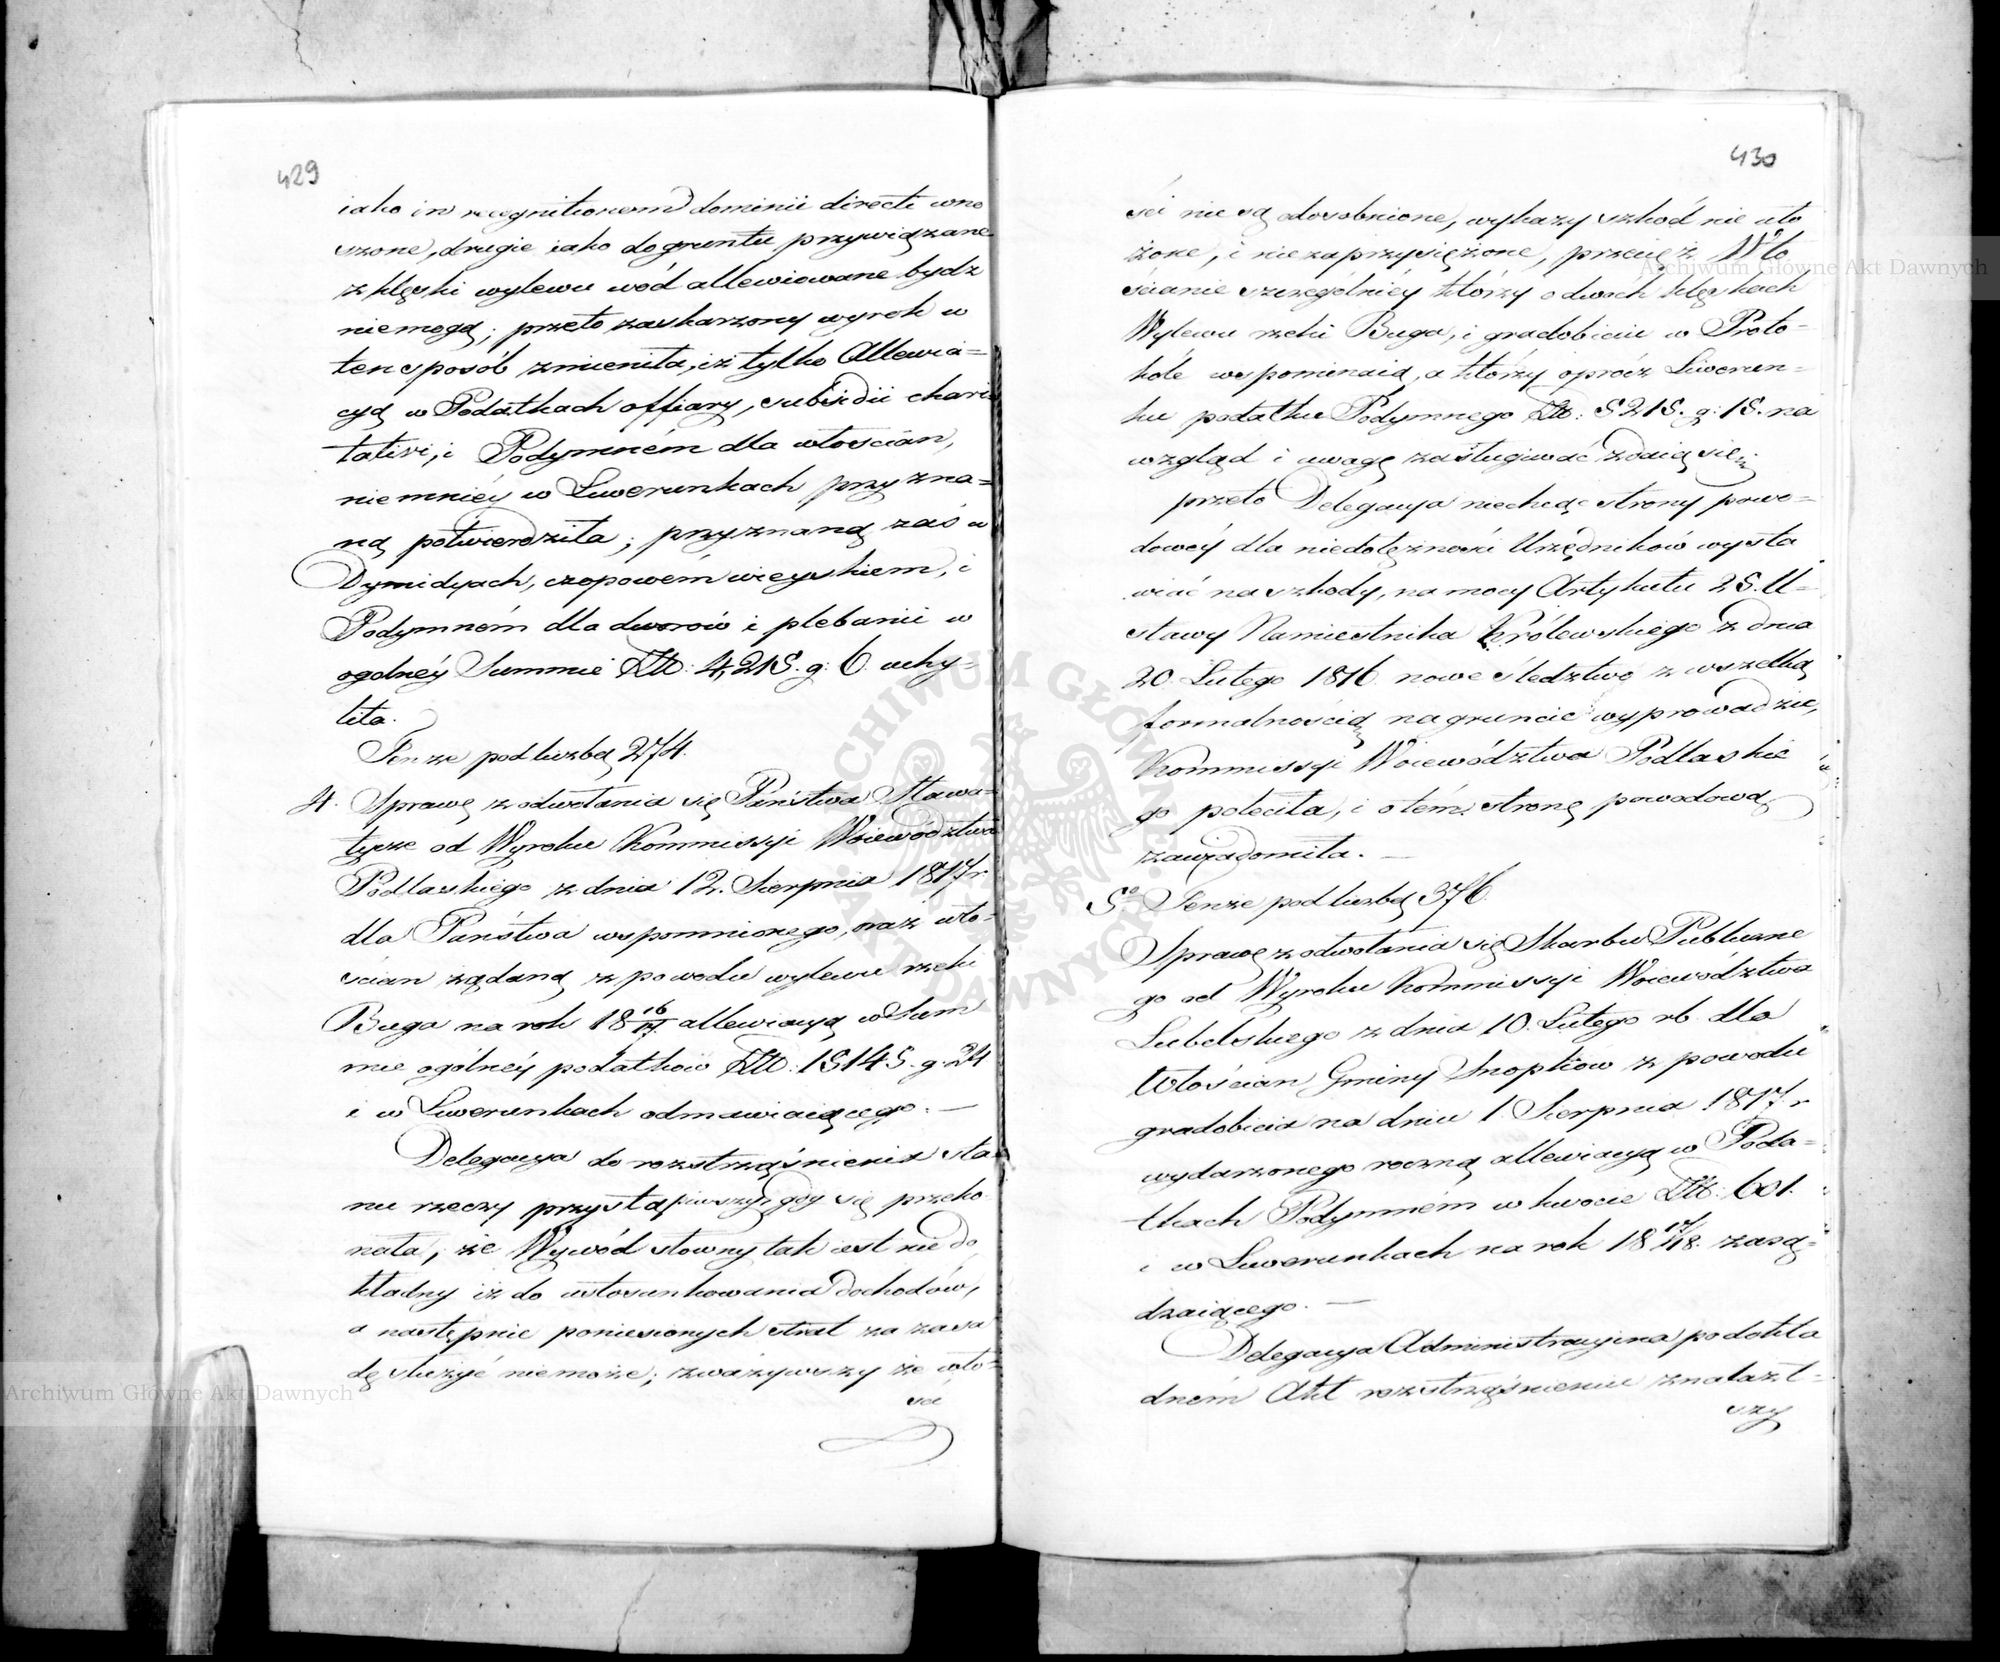 429
iako in recognitionem dominii directi wno
szone, drugie iako do gruntu przywiązane
z klęski wylewu wód allewiowane bydz
niemogą; przeto zaskarzony wyrok w
ten sposób zmieniła, iż tylko Allewia=
cyą w Podatkach offiary, subsidii chari
tativi, i Podymném dla włościan,
niemniéy w Liwerunkach przyzna=
ną potwierdziła; przyznaną zaś w
Dymidyach, czopowém wieyskiem, i
Podymném dla dworów i plebanii w
ogolnéy Summie Złt: 4,215. g: 6. uchy=
liła.
Tenże pod liczbą 274.
4. Sprawę z odwołania się Państwa Sława=
tycze od Wyroku Kommissyi Woiewództwa
Podlaskiego z dnia 12. Sierpnia 1817 r
dla Państwa wspomnionego, oraz wło=
ścian żądaną z powodu wylewu rzeki
Buga na rok 18 16/17. allewiacyą w Sum
mie ogólnéy podatków Złt: 15145. g. 24
i w Liwerunkach odmawiaiącego. —
Delegacya do rozstrząśnienia sta
nu rzeczy przystąpiwszy, gdy się przeko
nała, że Wywód słowny tak iest nie do
kładny iż do ustosunkowania dochodów,
a następnie poniesionych strat za zasa
dę służyć niemoże; zważywszy że wło=
sci
430
ści nie są odosobnione, wykazy szkód nie uło
żone, i nie zaprzysiężone, przecięż Wło
ścianie szczególniéy którzy o dwóch klęskach
Wylewu rzeki Buga, i gradobiciu w Proto=
kóle wspominaią, a którzy oprócz Liwerun=
ku podatku Podymnego Złt: 5215. g: 15. na
wzgląd i uwagę zasługiwać zdaią się;
przeto Delegacya niechcąc strony powo=
dowéy dla niedołężności Urzędników wysta
wiać na szkody, na mocy Artykułu 25. U=
stawy Namiestnika Królewskiego z dnia
20. Lutego 1816. nowe śledztwo z wszelką
formalnością na gruncie wyprowadzić,
Kommissyi Woiewództwa Podlaskie
go poleciła, i o tém stronę powodową
zawiadomiła. —
5o Tenże pod liczbą 376.
Sprawę z odwołania się Skarbu Publiczne
go od Wyroku Kommissyi Woiewództwa
Lubelskiego z dnia 10. Lutego rb. dla
Włościan Gminy Snopków z powodu
gradobicia na dniu 1. Sierpnia 1817. r
wydarzonego roczną allewiacyą w Poda=
tkach Podymném w kwocie Złt: 601.
i w Liwerunkach na rok 18 17/18. zasą=
dzaiącego. —
Delegacya Administracyina po dokła
dném Akt rozstrząśnieniu znalazł=
szy
ARCHIWUM GŁÓWNE AKT DAWNYCH
Archiwum Główne Akt Dawnych
Archiwum Główne Akt Dawnych